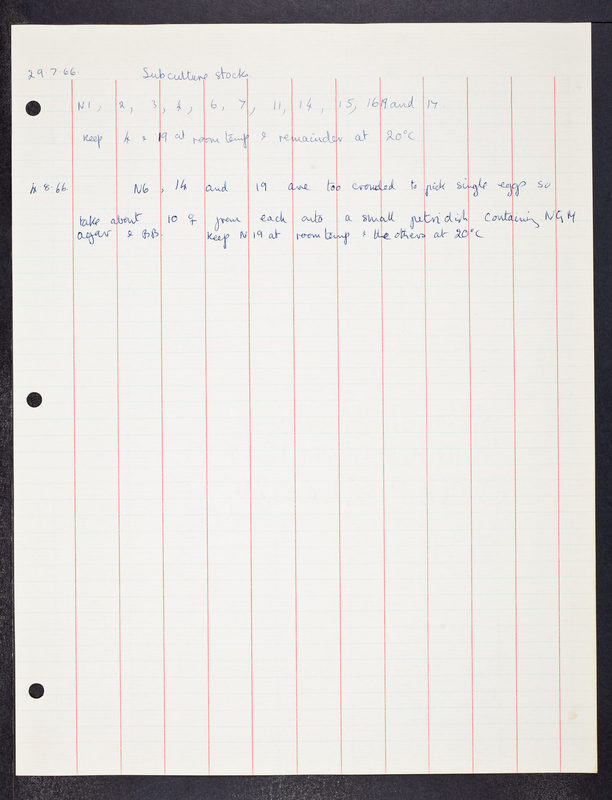 29.7.66. Subculture stocks.
N1, 2, 3, 4, 6, 7, 11, 14, 15, 16, 19 and 17.
Keep 4 & 19 at room temp & remainder at 20°C
4.8.66. N6, 14 and 19 are too crowded to pick single eggs so
take about 10 ♀ from each onto a small petri dish containing NGM
agar & BB. Keep N19 at room temp & the others at 20°C